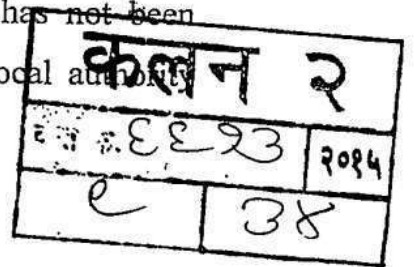 has not been
ocal authority
कलन २
६६२३ २०१५
९ ३४